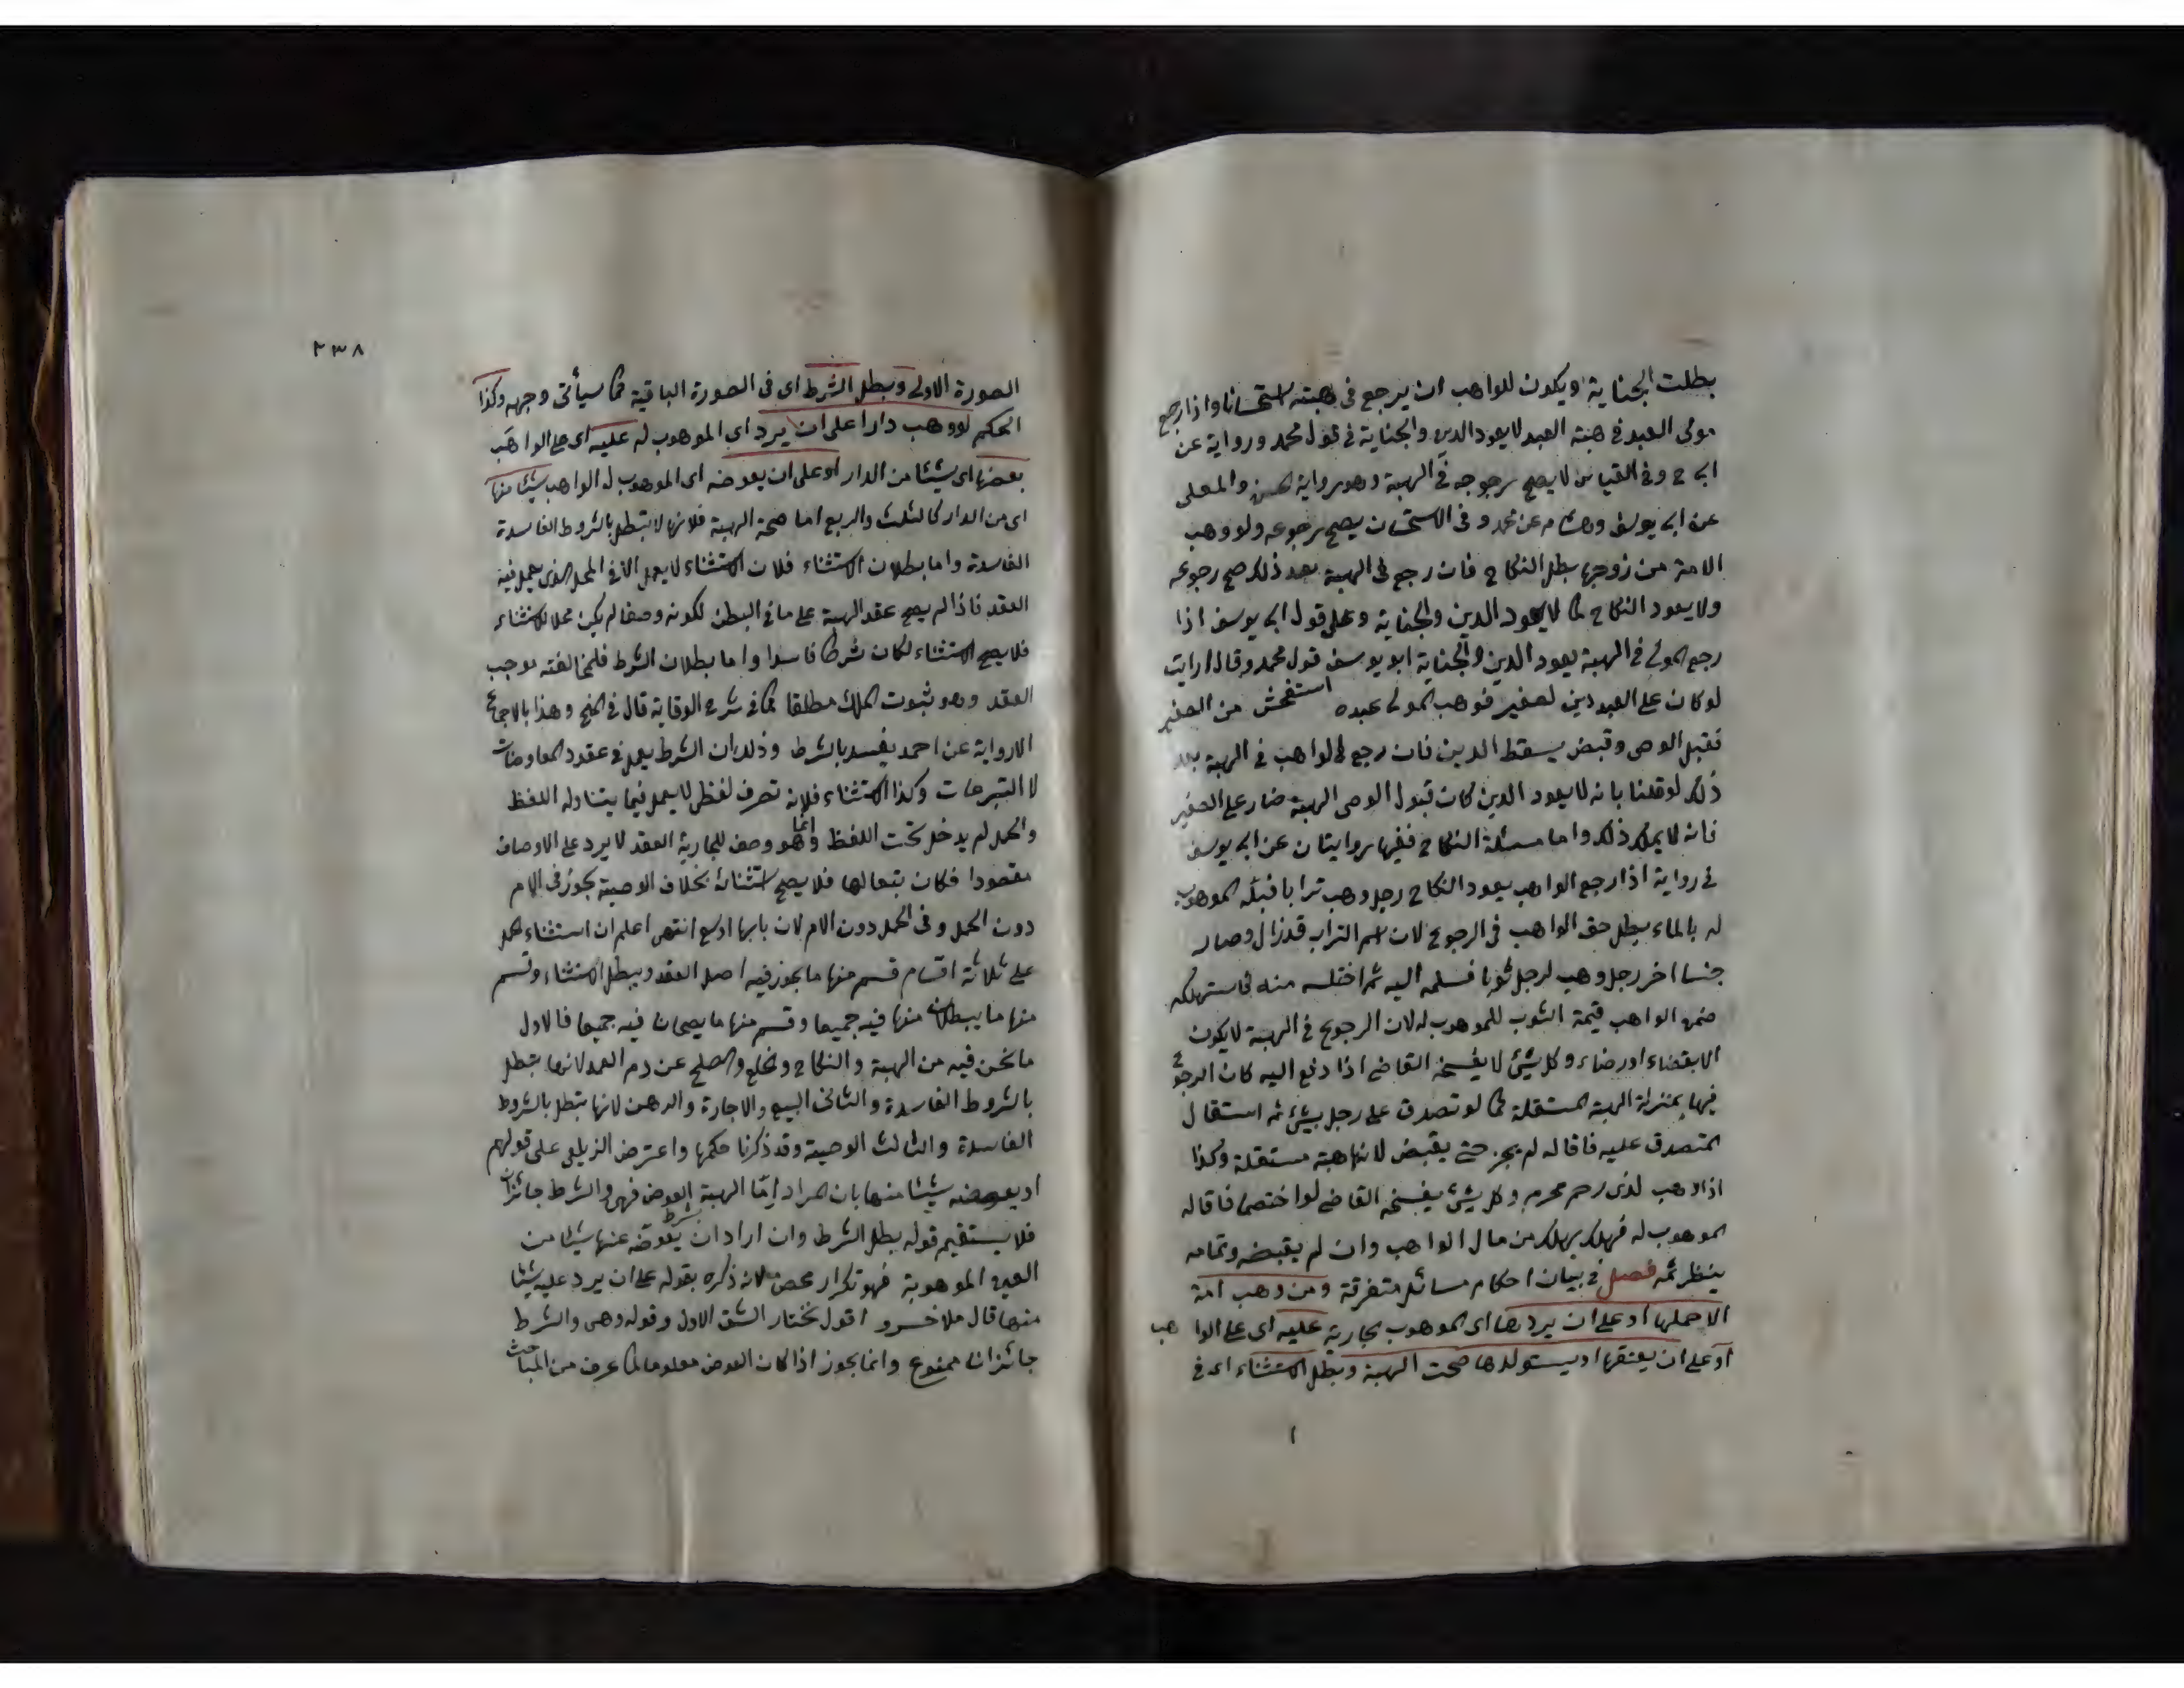 بطلت الجناية ويكون للواهب ان يرجع فى هبته استحسانا واذا رجع
مولى العبد فى هبة العبد لا يعود الدين والجناية فى قول محمد ورواية عن
ابى ح وفى القياس لا يصح رجوعه فى الهبة وهو رواية الحسن والمعلى
عن ابى يوسف وهشام عن محمد وفى الاستحسان يصح رجوعه ولو وهب
الامة من زوجها بطل النكاح فان رجع فى الهبة بعد ذلك صح رجوعه
ولا يعود النكاح كما لا يعود الدين والجناية وعلى قول ابى يوسف اذا
رجع المولى فى الهبة يعود الدين والجناية ابو يوسف قول محمد وقال ارايت
لو كان على العبد دين لصغير فوهب المولى عبده استفحش من الصغير
فقبل الوصى وقبض يسقط الدين فان رجع الواهب فى الهبة بعد
ذلك لو قلنا بانه لا يعود الدين كان قبول الوصى الهبة ضار على الصغير
فانه لا يملك ذلك واما مسئلة النكاح ففيها روايتان عن ابى يوسف
فى رواية اذا رجع الواهب يعود النكاح رجل وهب ترابا فبله الموهوب
له بالماء بطل حق الواهب فى الرجوع لان اسم التراب قد زال وصار
جنسا اخر رجل وهب لرجل ثوبا فسلمه اليه ثم اختلسه منه فاستهلكه
ضمن الواهب قيمة الثوب للموهوب له لان الرجوع فى الهبة لا يكون
الا بقضاء او رضاء وكل شئ لا يفسخه القاضى اذا دفع اليه كان الرجوع
فيها بمنزلة الهبة المستقلة كما لو تصدق على رجل بشئ ثم استقال
المتصدق عليه فاقاله لم يجز حتى يقبض لانها هبة مستقلة وكذا
اذا وهب لذى رحم محرم وكل شئ يفسخه القاضى لو اختصما فاقاله
الموهوب له فهلك يهلك من مال الواهب وان لم يقبضه وتمامه
ينظر ثمه فصل فى بيان احكام مسائل متفرقة ومن وهب امة
الا حملها او على ان يردها اى الموهوب الجارية عليه اى على الوا هب
او على ان يعتقها او يستولدها صحت الهبة وبطل الاستثناء اى فى
٢٣٨
الصورة الاولى وبطل الشرط اى فى الصورة الباقية كما سيأتى وجهه وكذا
الحكم لو وهب دارا على ان يرد اى الموهوب له عليه اى على الواهب
بعضها اى شيئا من الدار او على ان يعوضه اى الموهوب له الواهب شيئا منها
اى من الدار كالثلث والربع اما صحة الهبة فلانها لا تبطل بالشروط الفاسدة
الفاسدة واما بطلان الاستثناء فلان الاستثناء لا يعمل الا فى المحل الذى يعمل فيه
العقد فاذا لم يصح عقد الهبة على ما فى البطن لكونه وصفا لم يكن محلا للاستثناء
فلا يصح الاستثناء لكان شرطا فاسدا واما بطلان الشرط فلمخالفته موجب
العقد وهو ثبوت الملك مطلقا كما فى شرح الوقاية قال فى المنح وهذا بالاجماع
الا رواية عن احمد يفسد بالشرط وذلك ان الشرط يعمل فى عقود المعاوضات
لا التبرعات وكذا الاستثناء فلانه تصرف لفظى لا يعمل فيما يتناوله اللفظ
والحمل لم يدخل تحت اللفظ وانما هو وصف للجارية العقد لا يرد على الاوصاف
مقصودا فكان تبعا لها فلا يصح استثنائه بخلاف الوصية تجوز فى الام
دون الحمل وفى الحمل دون الام لان بابها اوسع انتهى اعلم ان استثناء الحمل
على ثلاثة اقسام قسم منها ما يجوز فيه اصل العقد ويبطل الاستثناء وقسم
منها ما يبطلان منها فيه جميعا وقسم منها ما يصحان فيه جميعا فالاول
ما نحن فيه من الهبة والنكاح والخلع والصلح عن دم العمد لانها تبطل
بالشروط الفاسدة والثانى البيع والاجارة والرهن لانها تبطل بالشروط
الفاسدة والثالث الوصية وقد ذكرنا حكمها واعترض الزيلعى على قولهم
او يعوضه شيئا منها بان المراد اما الهبة العوض فهى والشرط جائزان
فلا يستقيم قوله بطل الشرط وان اراد ان شرط يعوضه عنها شيئا من
العين الموهوبة فهو تكرار محض لانه ذكره بقوله على ان يرد عليه شيئا
منها قال ملا خسرو اقول نختار الشق الاول وقوله وهى والشرط
جائزان ممنوع وانما يجوز اذا كان العوض معلوما لما عرف من المباحث